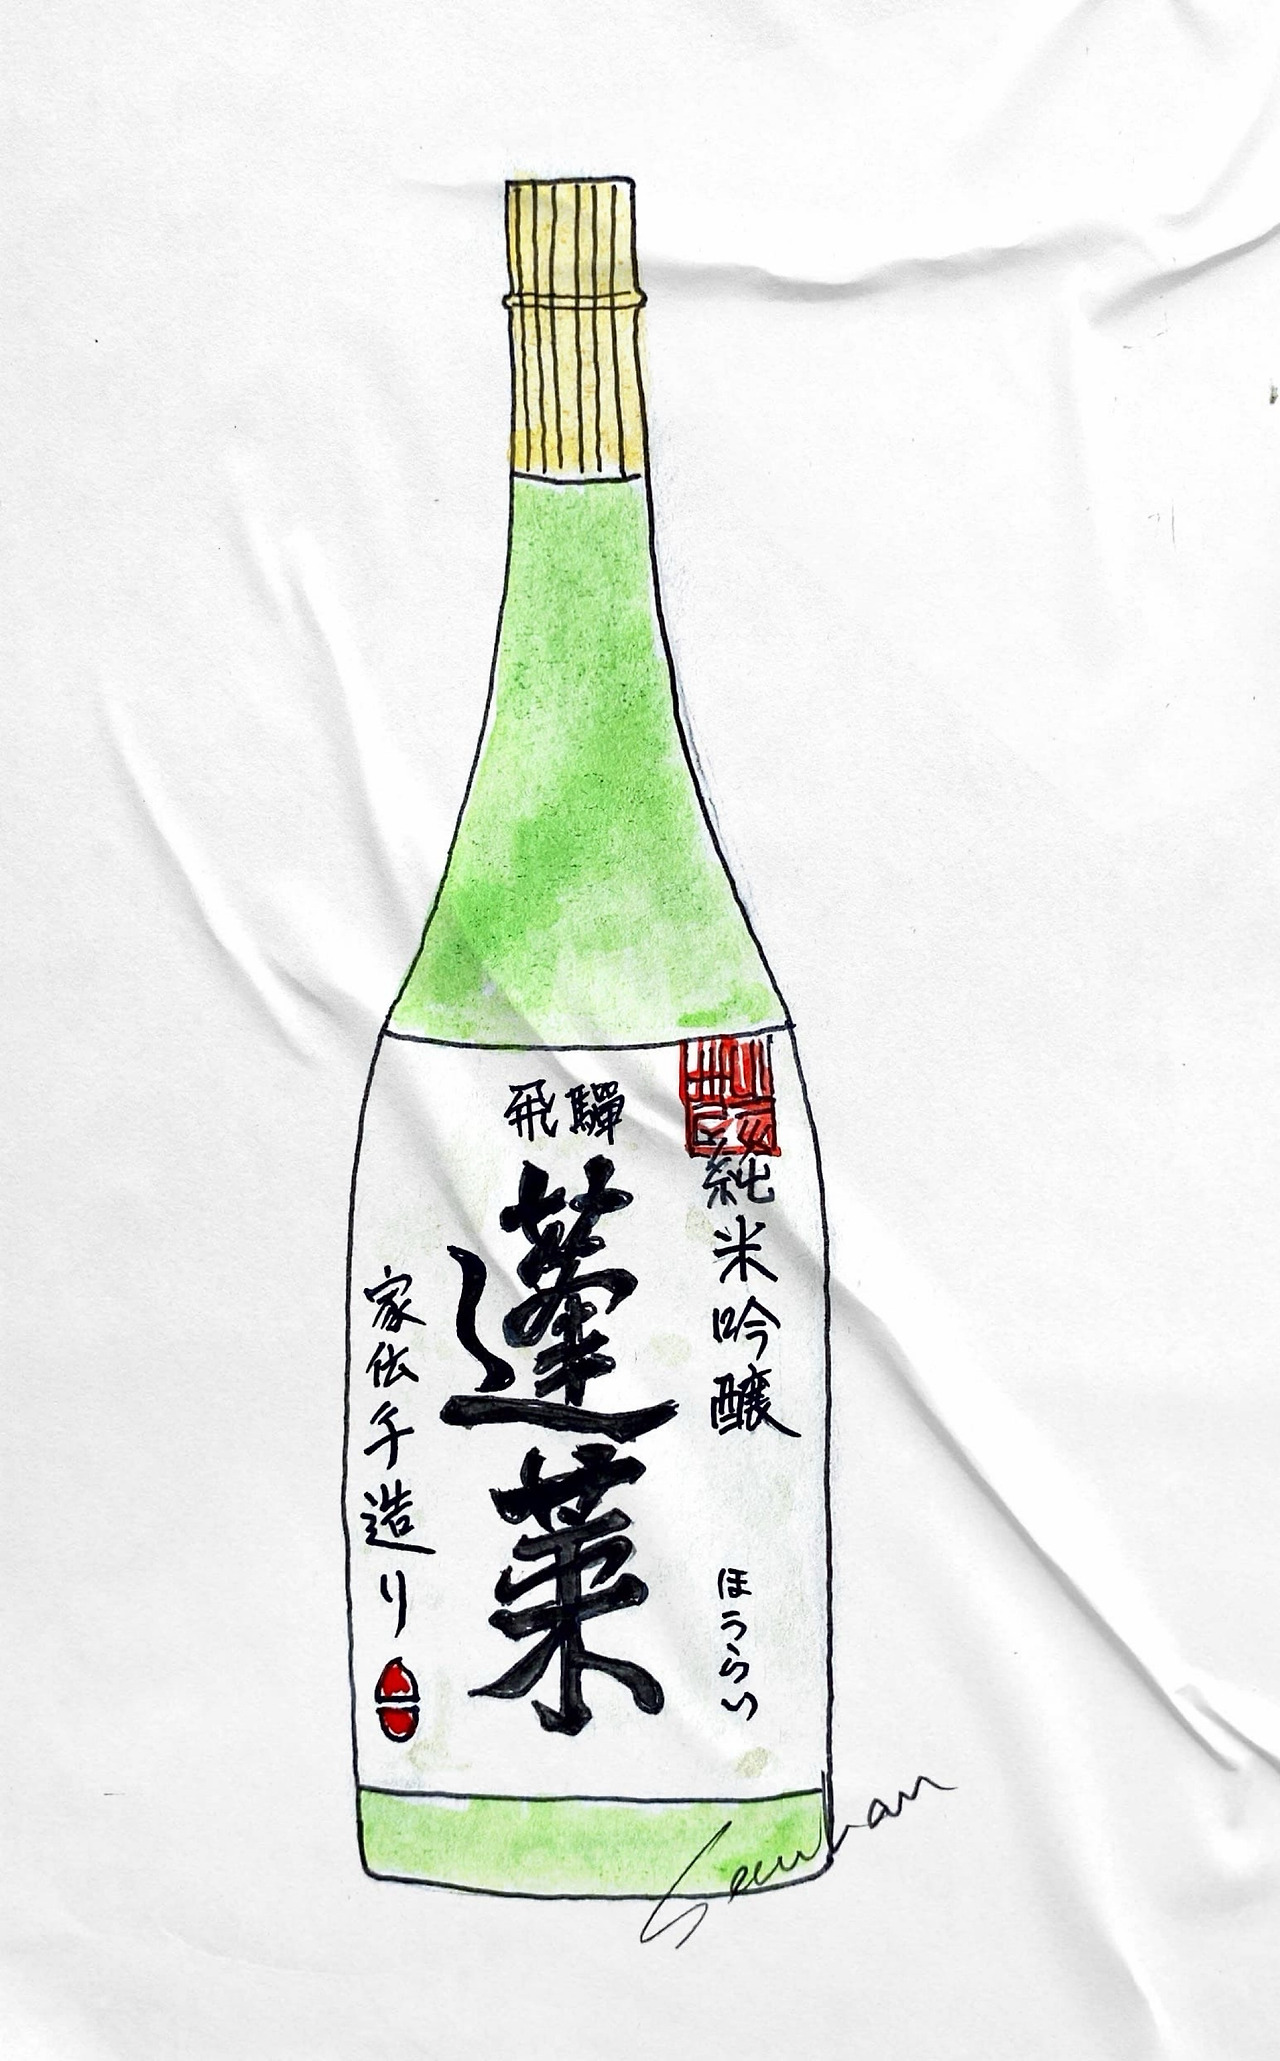 飛驒
蓬莱
純米吟醸
ほうらい
家伝手造り